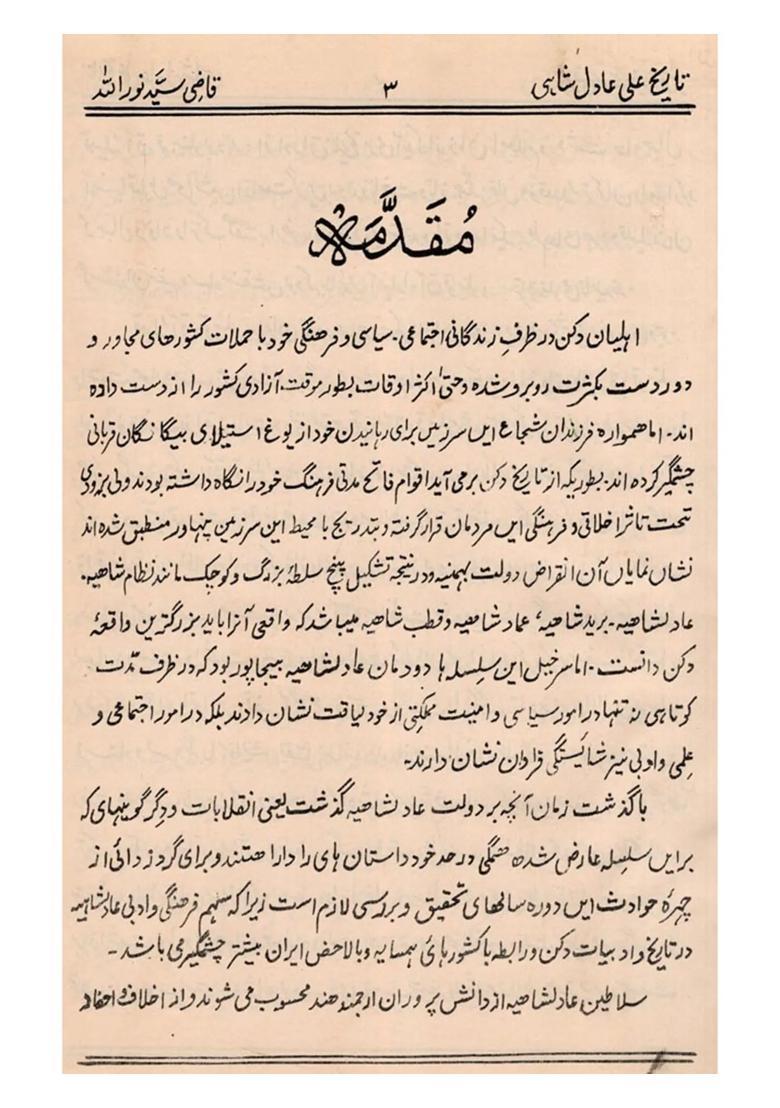 تاریخ علی عادل شاہی ۳ قاضی سیّد نور اللہ
مُقَدَّمَہ
اہلیان دکن در ظرفِ زندگانی اجتماعی۔ سیاسی و فرہنگی خود با حملات کشورهای مجاور و
دوردست بکثرت روبرو شده وحتیٰ اکثر اوقات بطور موقت۔ آزادی کشور را از دست داده
اند۔ اما همواره فرزندان شجاع ایں سرزمیں برای رهانیدن خود از یوغ استیلای بیگانگان قربانی
چشمگیر کرده اند۔ بطوریکہ از تاریخ دکن برمی آید اقوام فاتح مدتی فرہنگ خود را نگاه داشتہ بودند ولی بزودی
تحت تاثر اخلاقی و فرہنگی ایں مردمان قرار گرفتہ و بتدریج با محیط این سرزمین پہناور منطبق شده اند
نشان نمایاں آن انقراض دولت بہمنیہ و در نتیجہ تشکیل پنج سلطۂ بزرگ و کوچک مانند نظام شاهیہ۔
عادلشاهیہ۔ برید شاهیہ، عماد شاهیہ و قطب شاهیہ میباشد کہ واقعی آنرا باید بزرگترین واقعۂ
دکن دانست۔ اما سرخیل این سلسلہ ہا دودمان عادلشاهیہ بیجاپور بود کہ در ظرف مدّت
کوتاہی نہ تنہا در امور سیاسی و امنیت مملکتی از خود لیاقت نشان دادند بلکہ در امور اجتماعی و
علمی و ادبی نیز شائستگی فراوان نشان دارند۔
با گذشت زمان آنچہ بر دولت عادلشاهیہ گذشت یعنی انقلابات و دِگرگونیہای کہ
بر ایں سلسلہ عارض شده همگی در حد خود داستان های را دارا هستند و برای گرد زدائی از
چہرۂ حوادث ایں دوره سالهای تحقیق و بررسی لازم است زیرا کہ سہم فرہنگی و ادبی عادلشاهیہ
در تاریخ و ادبیات دکن و رابطہ با کشورہائ ہمسایہ و بالاخص ایران بیشتر چشمگیر می باشد۔
سلاطین عادلشاهیہ از دانش پروران ارجمند هند محسوب می شوند و از اخلاف و احفاد